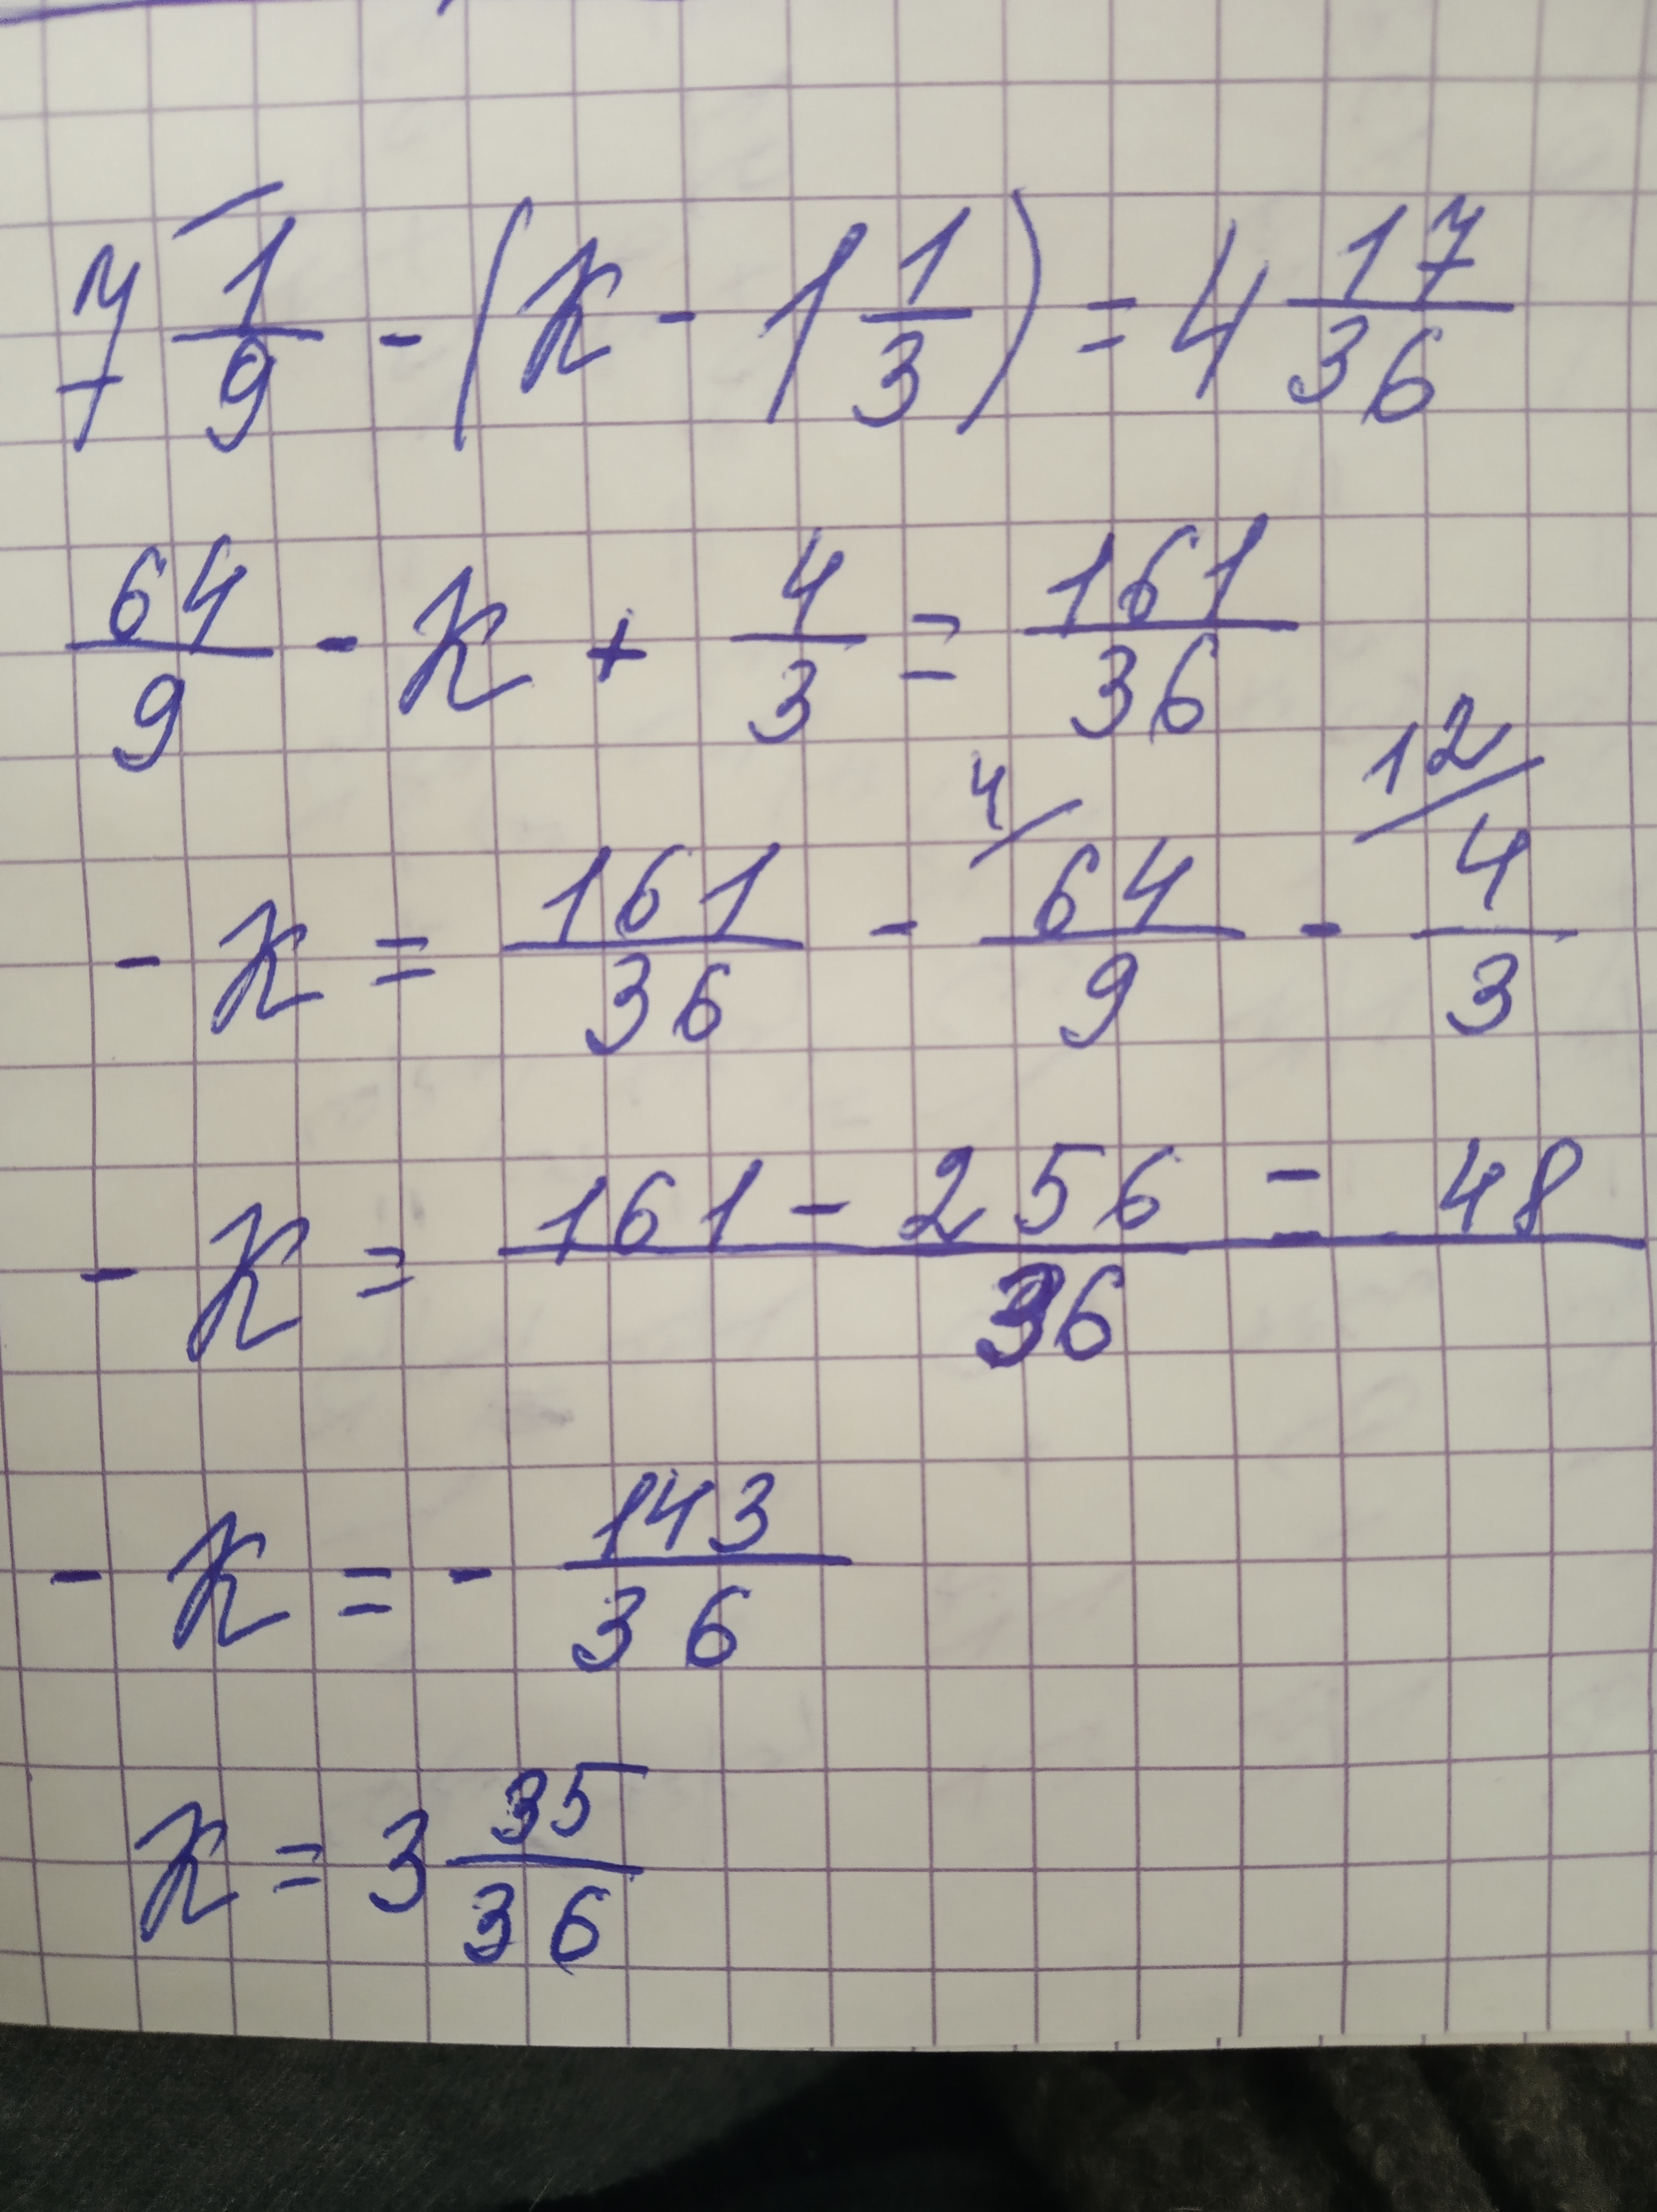 7 1/9 - (x - 1 1/3) = 4 17/36
64/9 - x + 4/3 = 161/36
- x = 161/36 - 4/ 64/9 - 12/ 4/3
- x = 161 - 256 - 48 / 36
- x = - 143/36
x = 3 35/36